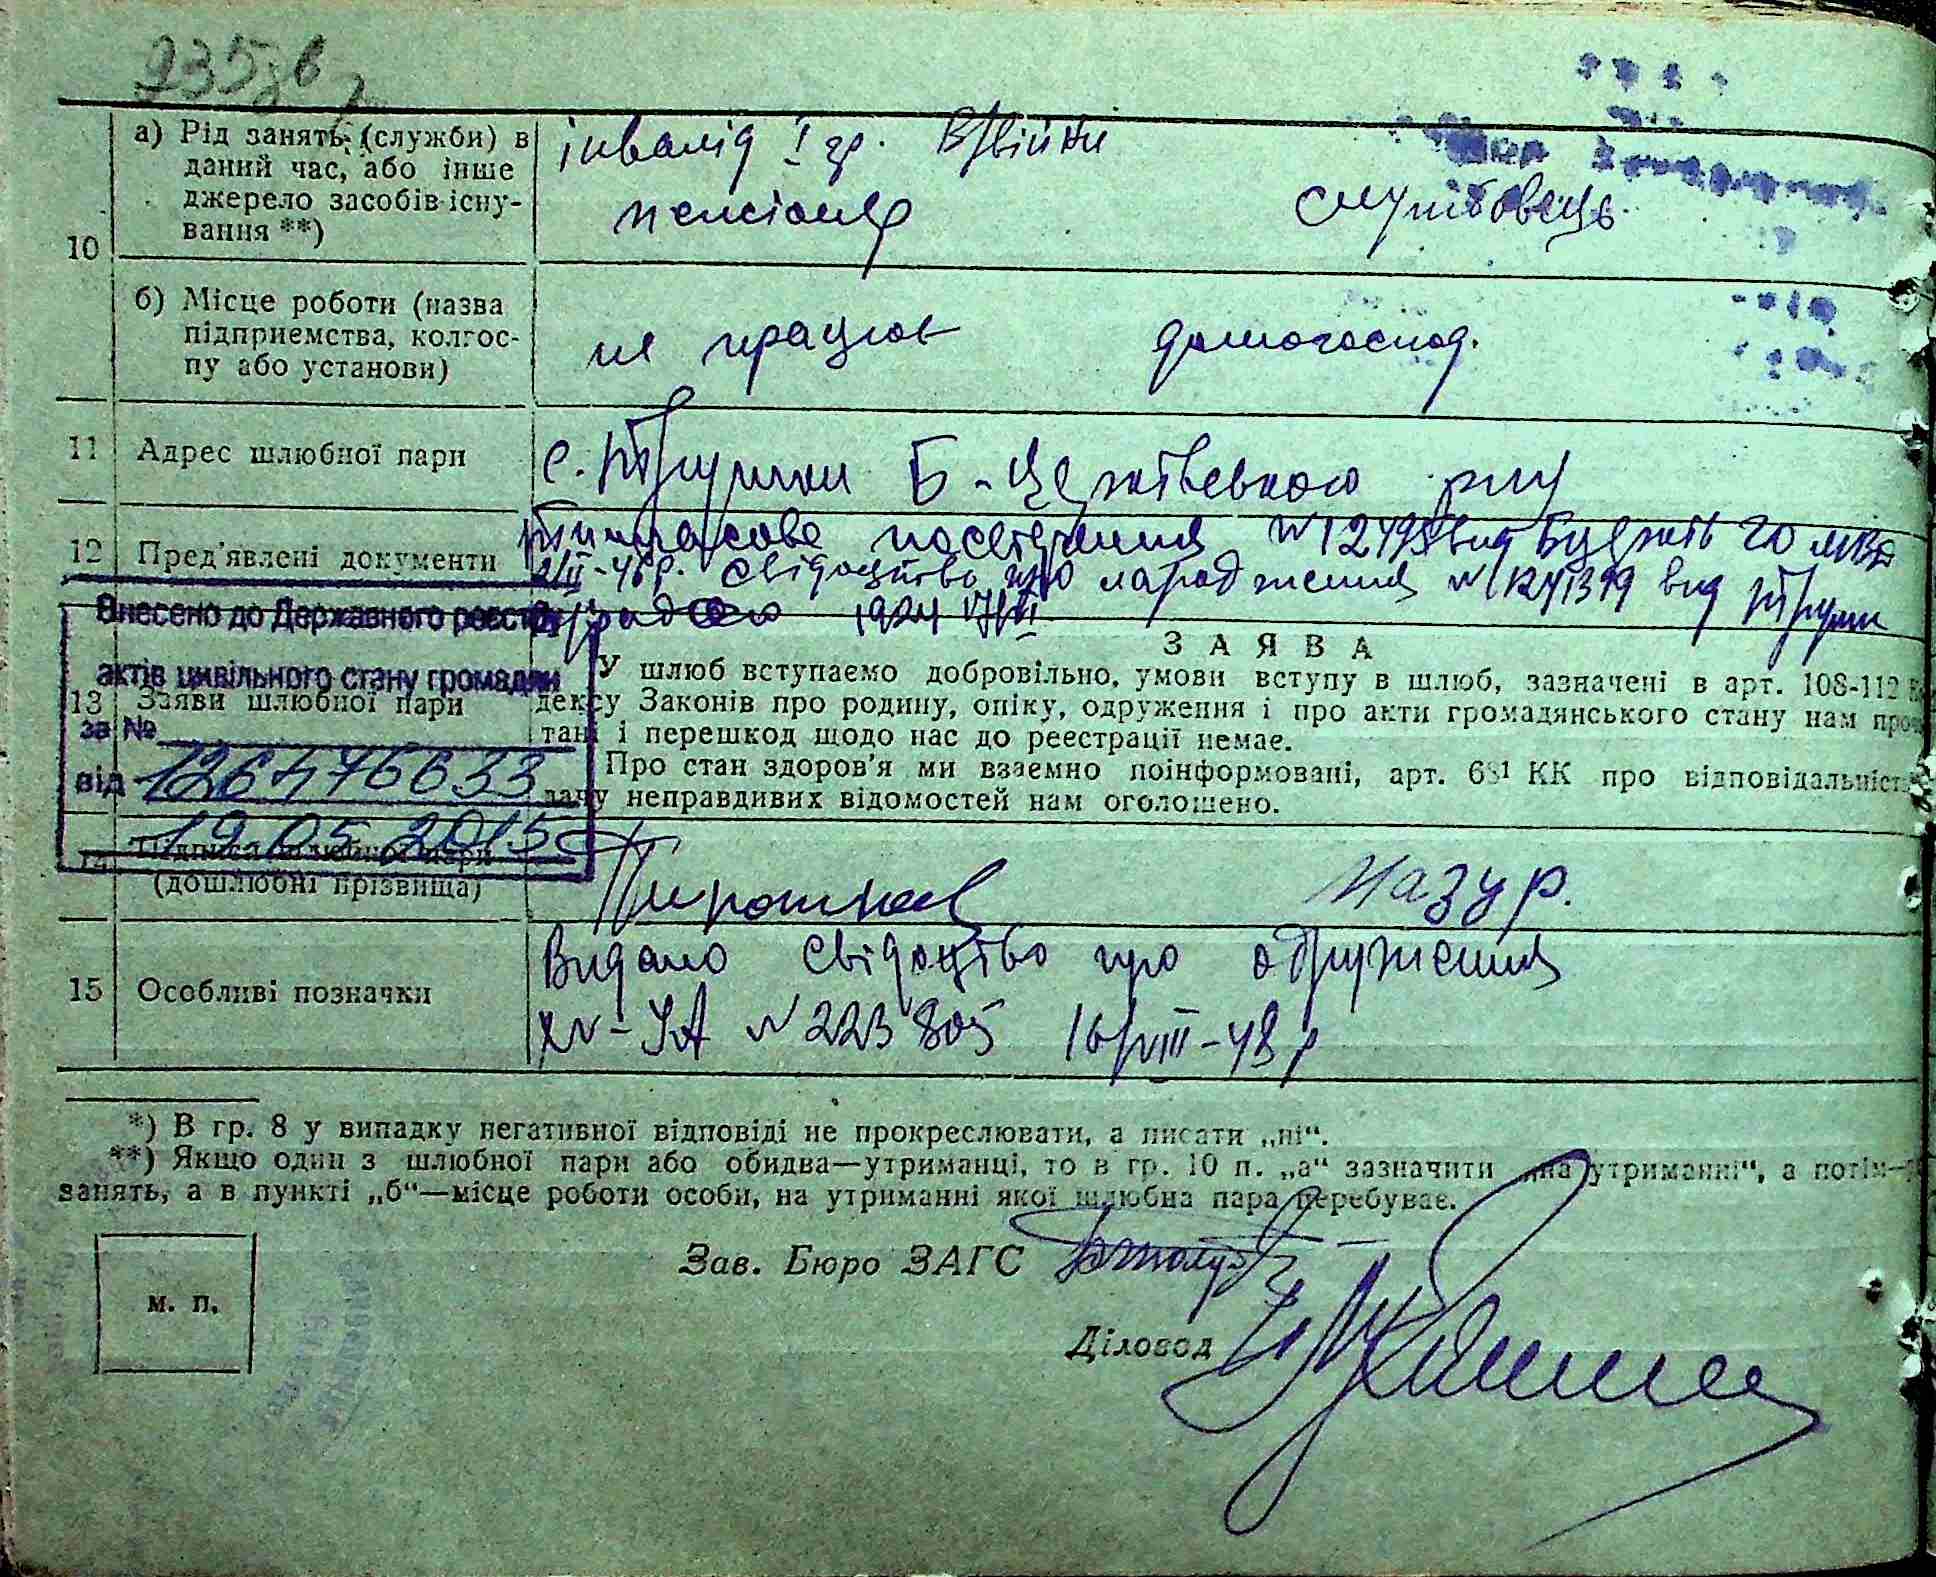 10
а) Рід занять (служби) в
даний час, або інше
джерело засобів існу-
вання **)
інвалід І гр. В/війни
пенсіонер
службовець
б) Місце роботи (назва
підприємства, колгос-
пу або установи)
не працює
домогоспод.
11 Адрес шлюбної пари
с. Трушки Б-Церківського р-ну
12 Пред'явлені документи
Тимчасове посвідчення №
свідоцтво про народження № від Трушк
1924
Внесено до Державного реєстру
актів цивільного стану громадян
за №
126476633
від
19.05.2015
13 Заяви шлюбної пари
ЗАЯВА
У шлюб вступаємо добровільно, умови вступу в шлюб, зазначені в арт. 108-112
дексу Законів про родину, опіку, одруження і про акти громадянського стану нам
тані і перешкод щодо нас до реєстрації немає.
Про стан здоров'я ми взаємно поінформовані, арт. 68¹ КК про відповідальність
дачу неправдивих відомостей нам оголошено.
14 Підписи шлюбної пари
(дошлюбні прізвища)
Мазур.
15 Особливі позначки
Видано свідоцтво про одруження
№ 223805 16/VIII-48 р
*) В гр. 8 у випадку негативної відповіді не прокреслювати, а писати „ні“.
**) Якщо один з шлюбної пари або обидва—утриманці, то в гр. 10 п. „а“ зазначити „на утриманні“, а потім—
занять, а в пункті „б“—місце роботи особи, на утриманні якої шлюбна пара перебуває.
Зав. Бюро ЗАГС
м. п.
Діловод